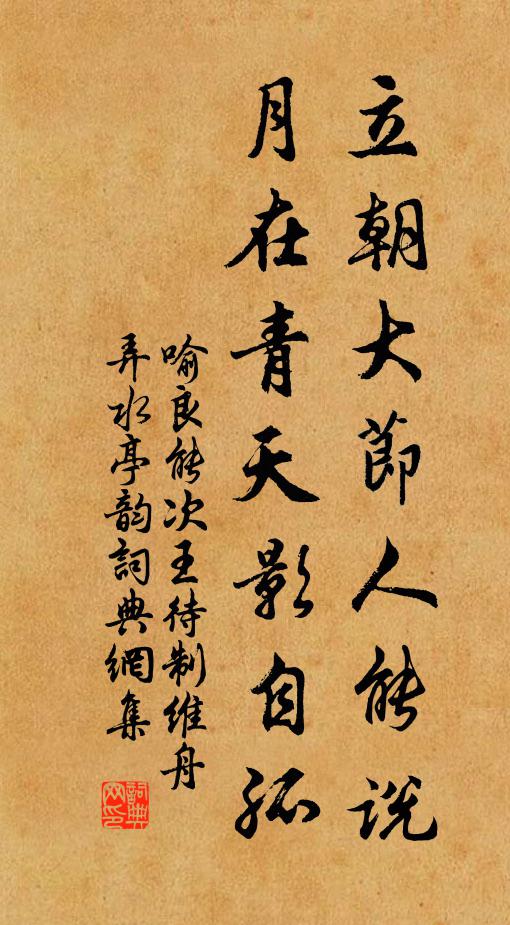 立朝大節人能說
月在青天影自孤
喻良能次王待制維舟
弄水亭韵詞典網集
詞典网印